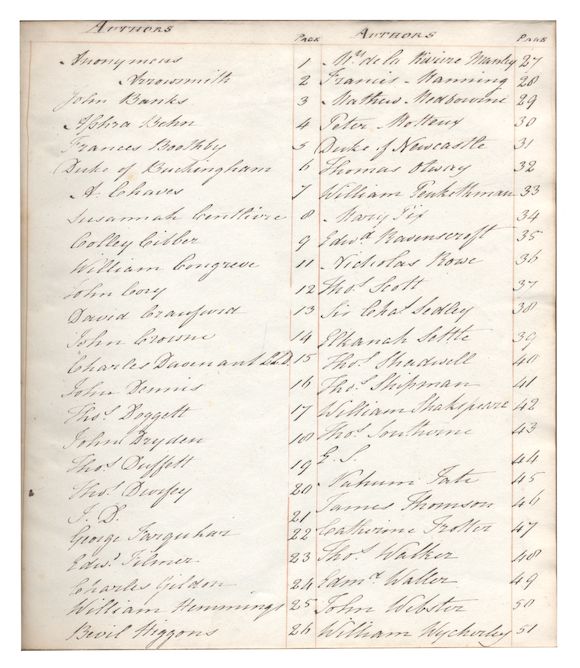 AUTHORS PAGE
Anonymous 1
Arrowsmith 2
John Banks 3
Aphra Behn 4
Frances Boothby 5
Duke of Buckingham 6
A. Chaves 7
Susannah Centlivre 8
Colley Cibber 9
William Congreve 11
John Cory 12
David Craufurd 13
John Crowne 14
Charles Davenant LLD. 15
John Dennis 16
Thos. Doggett 17
John Dryden 18
Thos. Duffett 19
Thos. Durfey 20
J. D. 21
George Farquhar 22
Edwd. Filmer 23
Charles Gildon 24
William Hemmings 25
Bevil Higgons 26
AUTHORS PAGE
Mrs. de la Riviere Manley 27
Francis Manning 28
Mathew Medbourne 29
Peter Motteux 30
Duke of Newcastle 31
Thomas Otway 32
William Penkethman 33
Mary Pix 34
Edwd. Ravenscroft 35
Nicholas Rowe 36
Thos. Scott 37
Sir Chas. Sedley 38
Elkanah Settle 39
Thos. Shadwell 40
Thos. Shipman 41
William Shakspeare 42
Thos. Southerne 43
E. S. 44
Nahum Tate 45
James Thomson 46
Catherine Trotter 47
Thos. Walker 48
Edmd. Waller 49
John Webster 50
William Wycherley 51